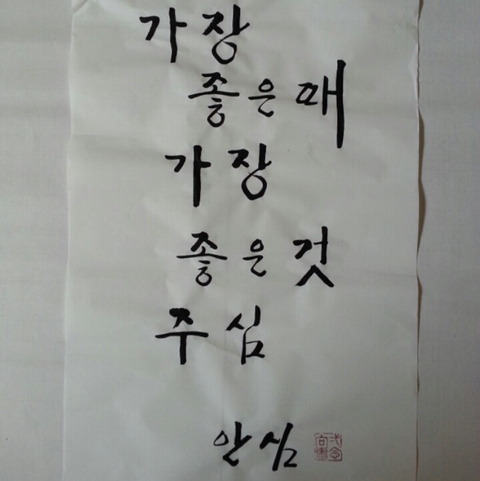 가장
좋은 때
가장
좋은 것
주심
안심